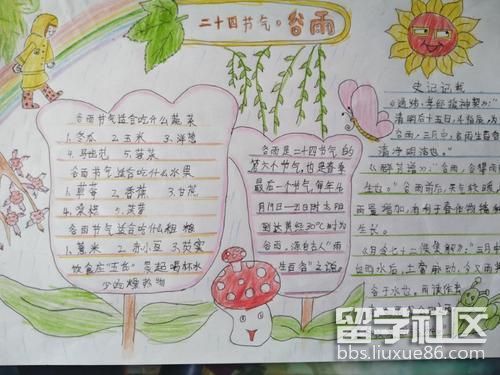 二十四节气。谷雨
谷雨节气适合吃什么蔬菜
1.冬瓜 2.玉米 3.洋葱
4.马齿苋 5.菠菜
谷雨节气适合吃什么水果
1.草莓 2.香蕉 3.甘蔗
4.桑椹 5.菠萝
谷雨节气适合吃什么粗粮
1.薏米 2.赤小豆 3.
饮食应"五古" 晨起喝杯水
少吃燥热物
谷雨是二十四节气的
第六个节气,也是春季
最后一个节气,每年4
月19日—21日时太阳
到达黄经30°C时为
谷雨,源自古人"雨
生百谷"之说。
史记记载
《通纬·孝经援神契》:
清明后十五日,斗指辰,
谷雨,三月中,
清净明洁也。"
《群芳谱》:"谷雨,谷得雨而
生也。"谷雨前后,天气较暖,
雨量增加,有利于春作物播种
生长。
《月令七十二候集解》:"三月中,
自雨水后,土膏脉动,今又雨其
谷于水也。
留学社区
bbs.liuxue86.com